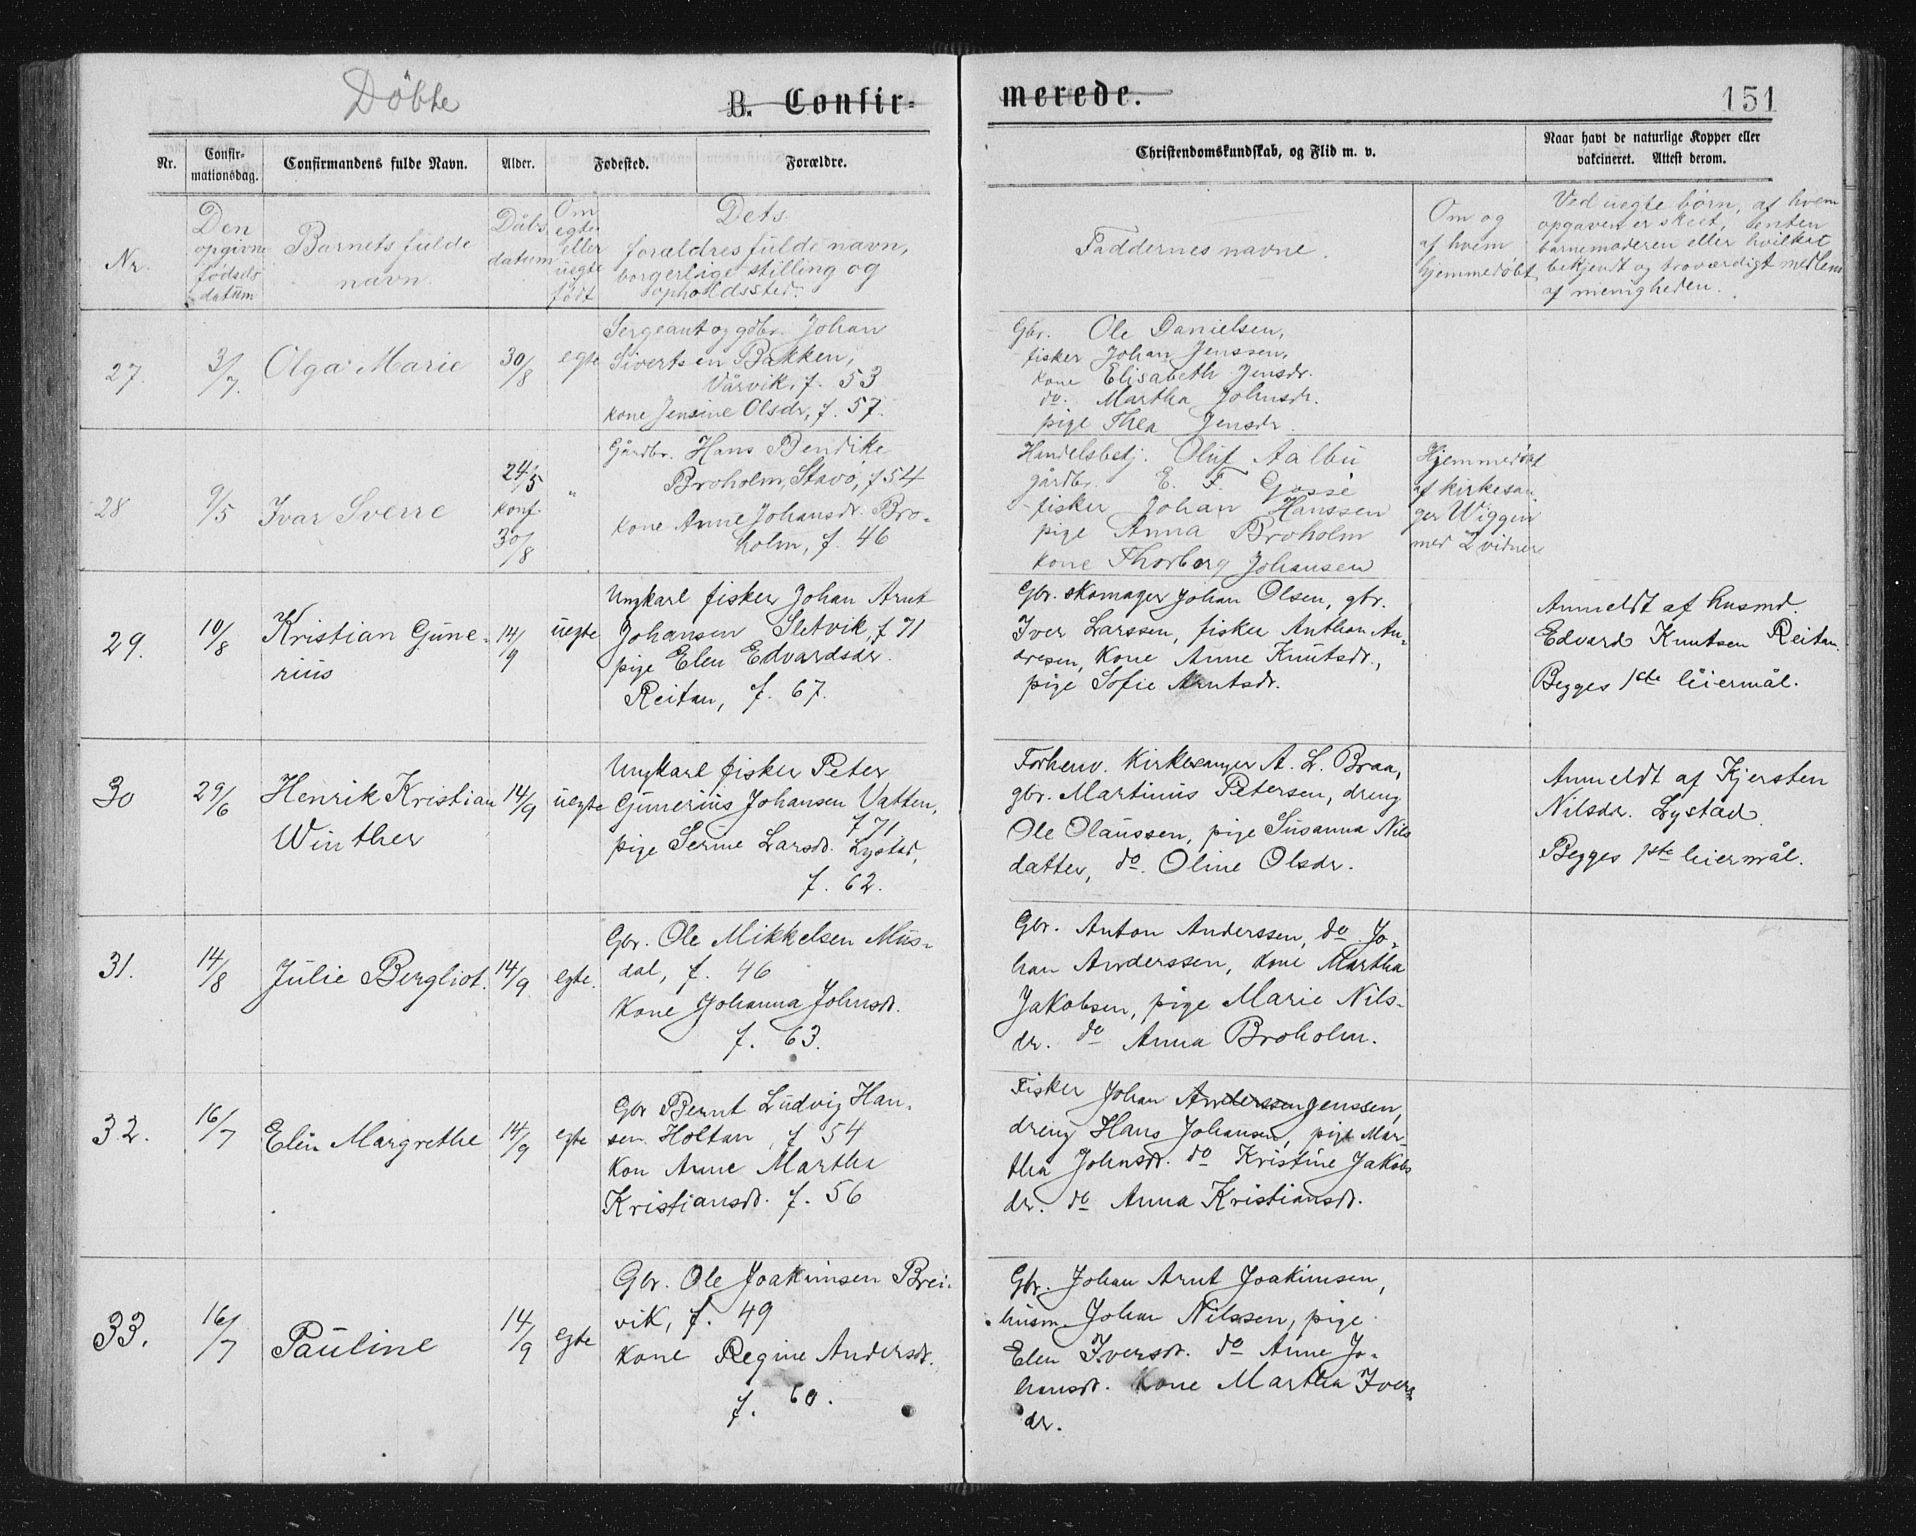 Döbte
B. Confir-
merede.
151
Nr.
Confir-
mationsdag.
Confirmandens fulde Navn.
Alder.
Fødested.
Forældre.
Christendomskundskab, og Flid m. v.
Naar havt de naturlige Kopper eller
vakcineret. Attest derom.
Nr.
Den
opgivne
fødsels
datum
Barnets fulde
navn.
Dåbs
datum
Om
egte
eller
uegte
født
Dets
forældres fulde navn,
borgerlige stilling og
opholdssted.
Faddernes navne.
Om og
af hvem
hjemmedøbt
Ved uegte börn, af hvem
opgaven er skeet, enten
barnemoderen eller hvilket
bekjendt og troværdigt medlem
af menigheden.
27.
3/7.
Olga Marie
30/8
egte
Sergeant og gdbr. Johan
Sivertsen Bakken,
Vårvik, f. 53
kone Jensine Olsdr, f. 57.
Gbr. Ole Danielsen,
fisker Johan Jenssen,
kone Elisabeth Jensdr.
do. Martha Johnsdr.
pige Thea Jensdr.
28
9/5
Ivar Sverre
24/5
konf.
30/8
"
Gårdbr. Hans Bendike
Broholm, Stavö, f 54
kone Anne Johansdr. Bro-
holm, f. 46
Handelsbetj. Oluf Aalbu
gårdbr. E. F. Gossé
fisker Johan Hanssen
pige Anna Broholm
kone Thorberg Johansen
Hjemmedøbt
af kirkesan-
ger Wiggen
med 2 vidner
29.
10/8
Kristian Gune-
rius
14/9
uegte
Ungkarl fisker Johan Arnt
Johansen Sletvik, f 71
pige Elen Edvardsdr.
Reitan, f. 67.
Gbr. skomager Johan Olsen, gbr.
Iver Larssen, fisker Anthon An-
dresen, Kone Anne Knutsdr.,
pige Sofie Arntsdr.
Anmeldt af husmd.
Edvard Knutsen Reitan.
Begges 1ste leiermål.
30
29/6
Henrik Kristian
Winther
14/9
uegte
Ungkarl fisker Peter
Gunerius Johansen Vatten,
f 71
pige Serine Larsdr. Lystad,
f. 62.
Forhenv. Kirkesanger A. L. Braa,
gbr. Martinus Petersen, dreng
Ole Olaussen, pige Susanna Nils
datter, do. Oline Olsdr.
Anmeldt af Kjersten
Nilsdr. Lystad.
Begges 1ste leiermål.
31.
14/8
Julie Bergliot.
14/9
egte.
Gbr. Ole Mikkelsen Mus-
dal, f. 46
Kone Johanna Johnsdr.
f. 63.
Gbr. Anton Anderssen, do Jo-
han Anderssen, kone Martha
Jakobsen, pige Marie Nils-
dr. do Anna Broholm.
32.
16/7
Elen Margrethe
14/9
egte
Gbr Bernt Ludvig Han-
sen Holtan, f 54
Kon Anne Martha
Kristiansdr. f. 56
Fisker Johan Anderssen Jenssen,
dreng Hans Johansen, pige Mar-
tha Johnsdr. do Kristine Jakobs
dr. do Anna Kristiansdr.
33.
16/7
Pauline
14/9
egte
Gbr. Ole Joakimsen Brei-
vik, f. 49
Kone Regine Andersdr.
f. 60.
Gbr. Johan Arnt Joakimsen,
husm. Johan Nilssen, pige
Elen Iversdr. do Anne Jo-
hansdr. Kone Martha Ivers
dr.